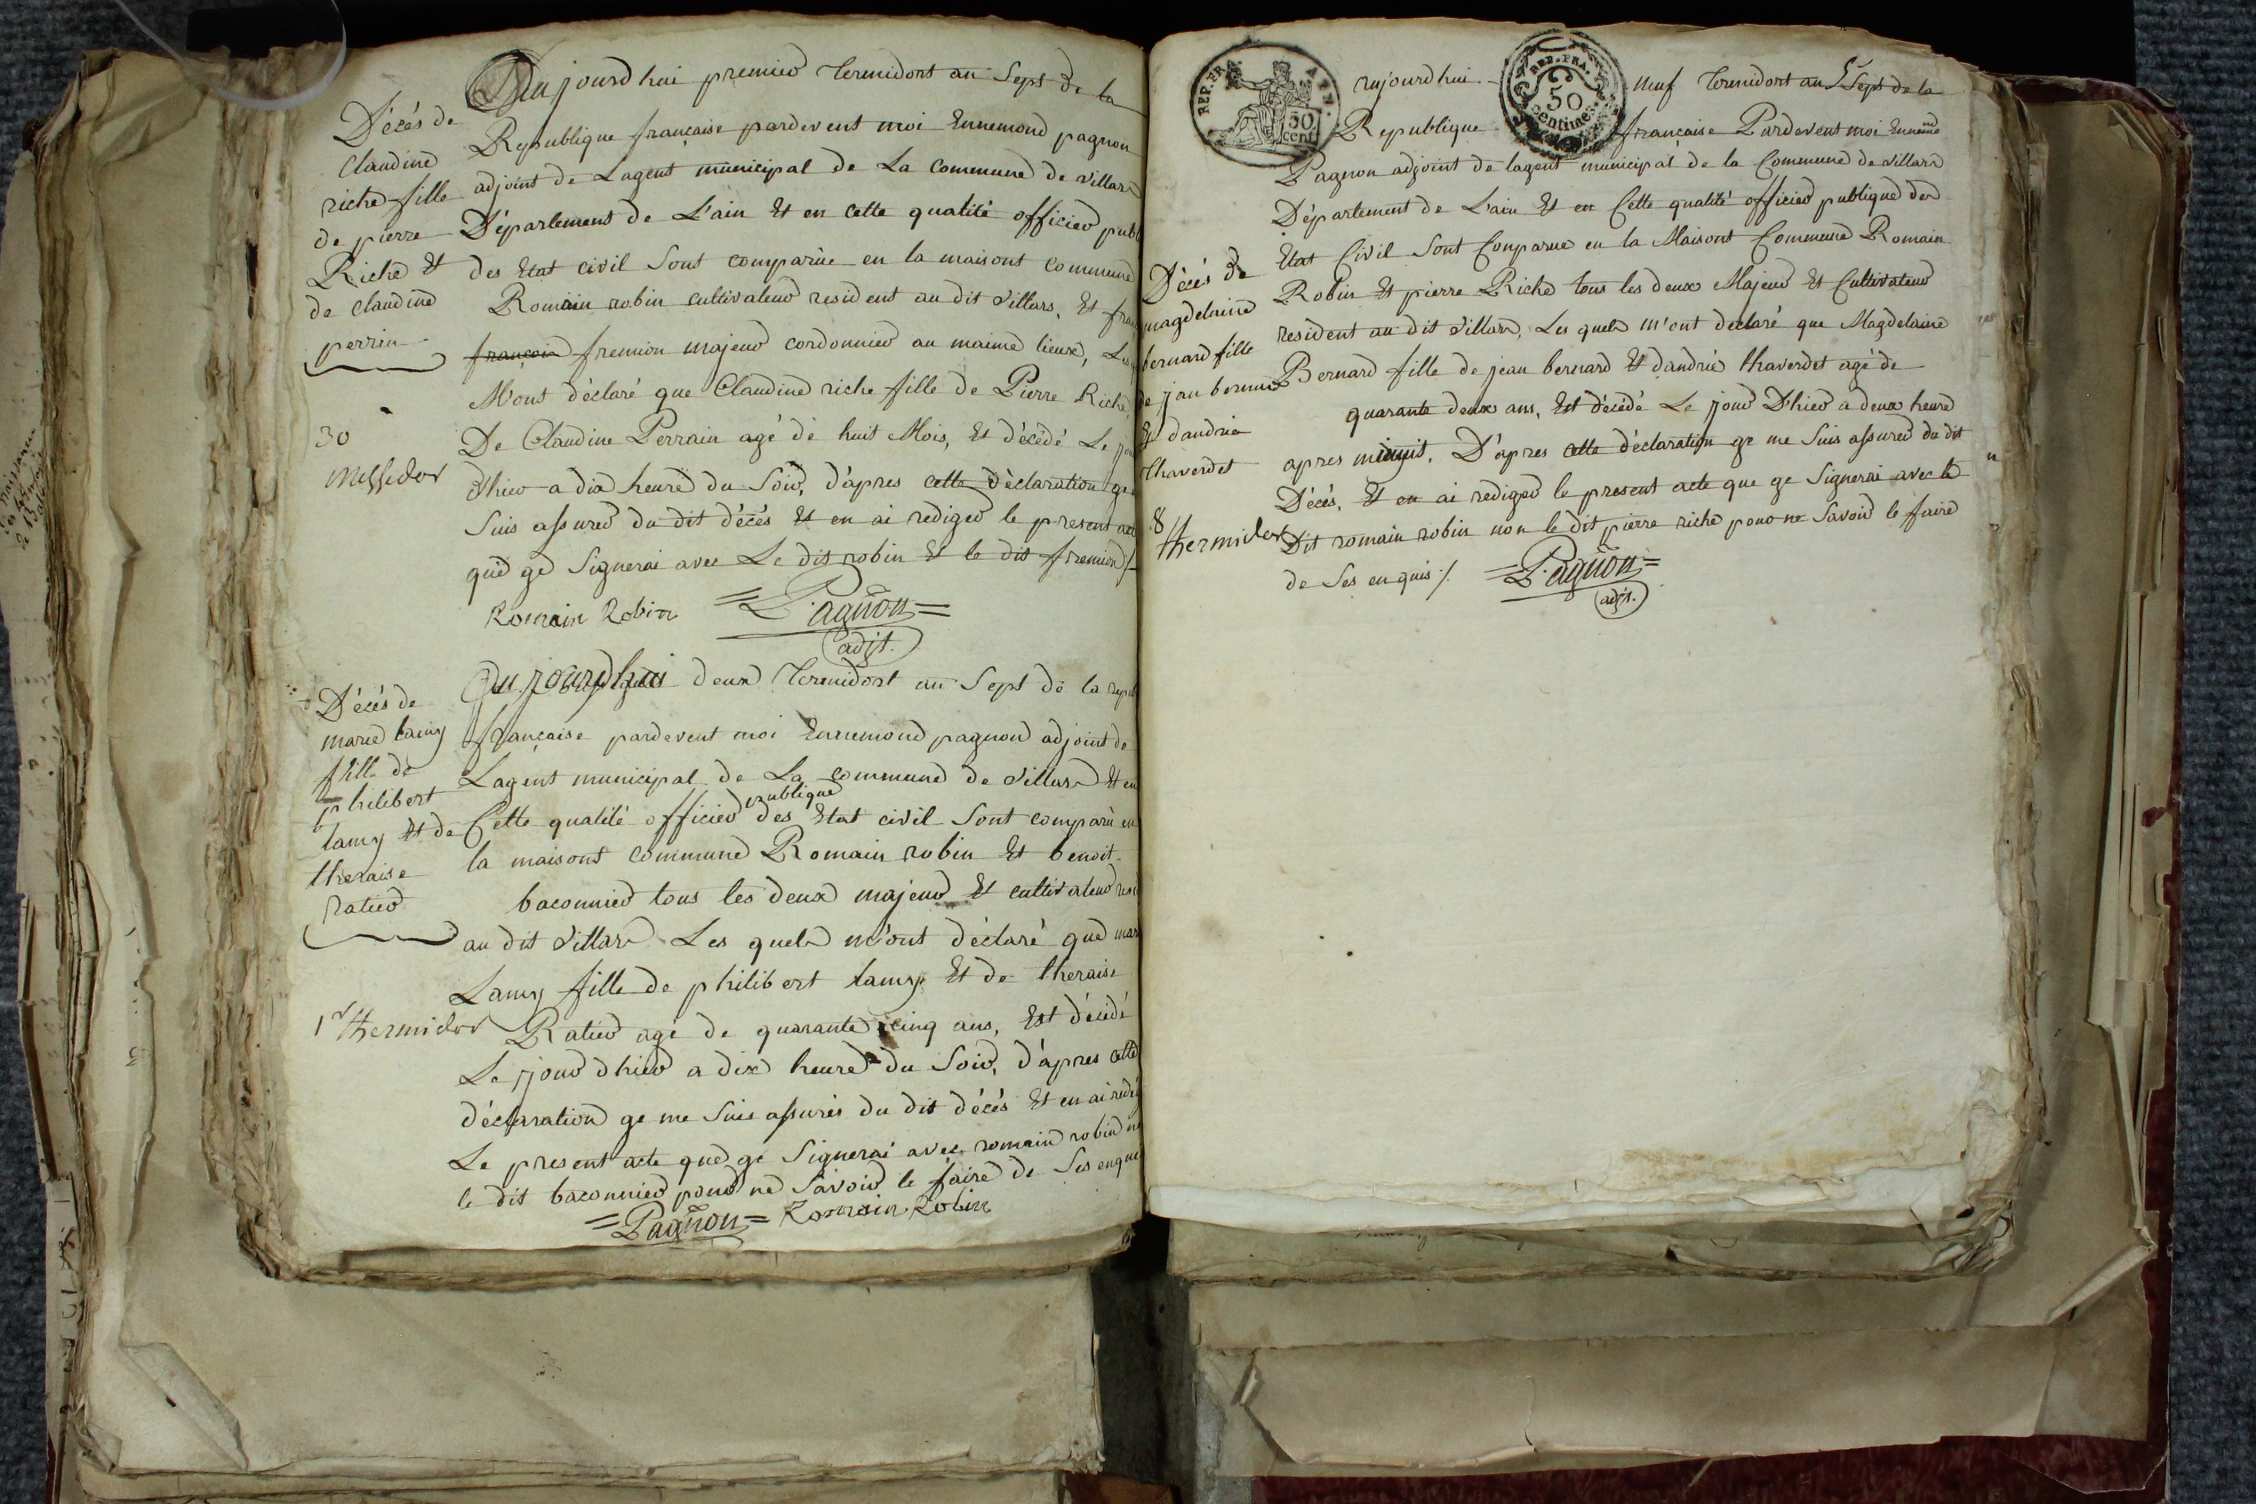 Aujourdhui premier termidort an Sept de la
Republique française pardevent moi Ennemond pagnon
adjoint de Lagent municipal de La commune de villars
Département de L'ain Et en cette qualité officier publ
des Etat civil Sont comparue en la maisont commune
Romain robin cultivateur resident au dit villars, Et fran
françois fremion majeur cordonnier au maime lieux, Les
M'ont déclaré que Claudine riche fille de Pierre Riche
De Claudine Perrain agé de huit Mois, Et décédé Le jou
dhier a dix heure du Soir, d'apres cette déclaration ge
Suis assurer du dit décés Et en ai rediger le present acte
que ge Signerai avec Le dit robin Et le dit fremion /.
Romain Robin =Pagnon=
adjt.
Décés de
Claudine
riche fille
de pierre
Riche Et
de claudine
perrin
30
Messidor
Aujourdhui deux termidort an Sept de la repub
française pardevent moi Ennemond pagnon adjoint de
Lagent municipal de La commune de villars Et en
Cette qualité officier publique des Etat civil Sont comparu en
la maisont commune Romain robin Et benoit
baconnier tous les deux majeur Et cultivateur resi
au dit villars Les quels m'ont déclaré que mari
Lamy fille de philibert lamy Et de theraise
Ratier agé de quarante cinq ans, Est décédé
Le jour dhier a dix heure du Soir, d'apres cette
déclaration ge me Suis assurés du dit décés Et en ai redig
Le present acte que ge Signerai avec romain robin no
le dit baconnier pour ne Savoir le faire de Ses enqui
=Pagnon= Romain Robin
Décés de
marie lamy
fille de
philibert
lamy Et de
theraise
ratier
1r thermidor
REP. FRA.
50
cent.
REP. FRA.
50
Centimes
aujourdhui neuf termidort an Sept de la
Republique française Pardevent moi Ennemd
Pagnon adjoint de lagent municipal de la Commune de villars
Département de L'ain Et en Cette qualité officier publique des
Etat Civil Sont Conparue en la Maisont Commune Romain
Robin Et pierre Riche tous les deux Majeur Et Cultivateur
resident au dit villars, Les quels m'ont declaré que Magdelaine
Bernard fille de jean bernard Et dandrié thaverdet agé de
quarante deux ans, Est décédé Le jour D'hier a deux heure
apres minuit. D'apres cette déclaration ge me Suis assurer du dit
Décés, Et en ai rediger le present acte que ge Signerai avec le
Dit romain robin non le dit pierre riche pour ne Savoir le faire
de Ses enquis /. =Pagnon=
adjt.
Décés de
magdelaine
bernard fille
de jean bernard
Et dandrié
thaverdet
8
thermidor